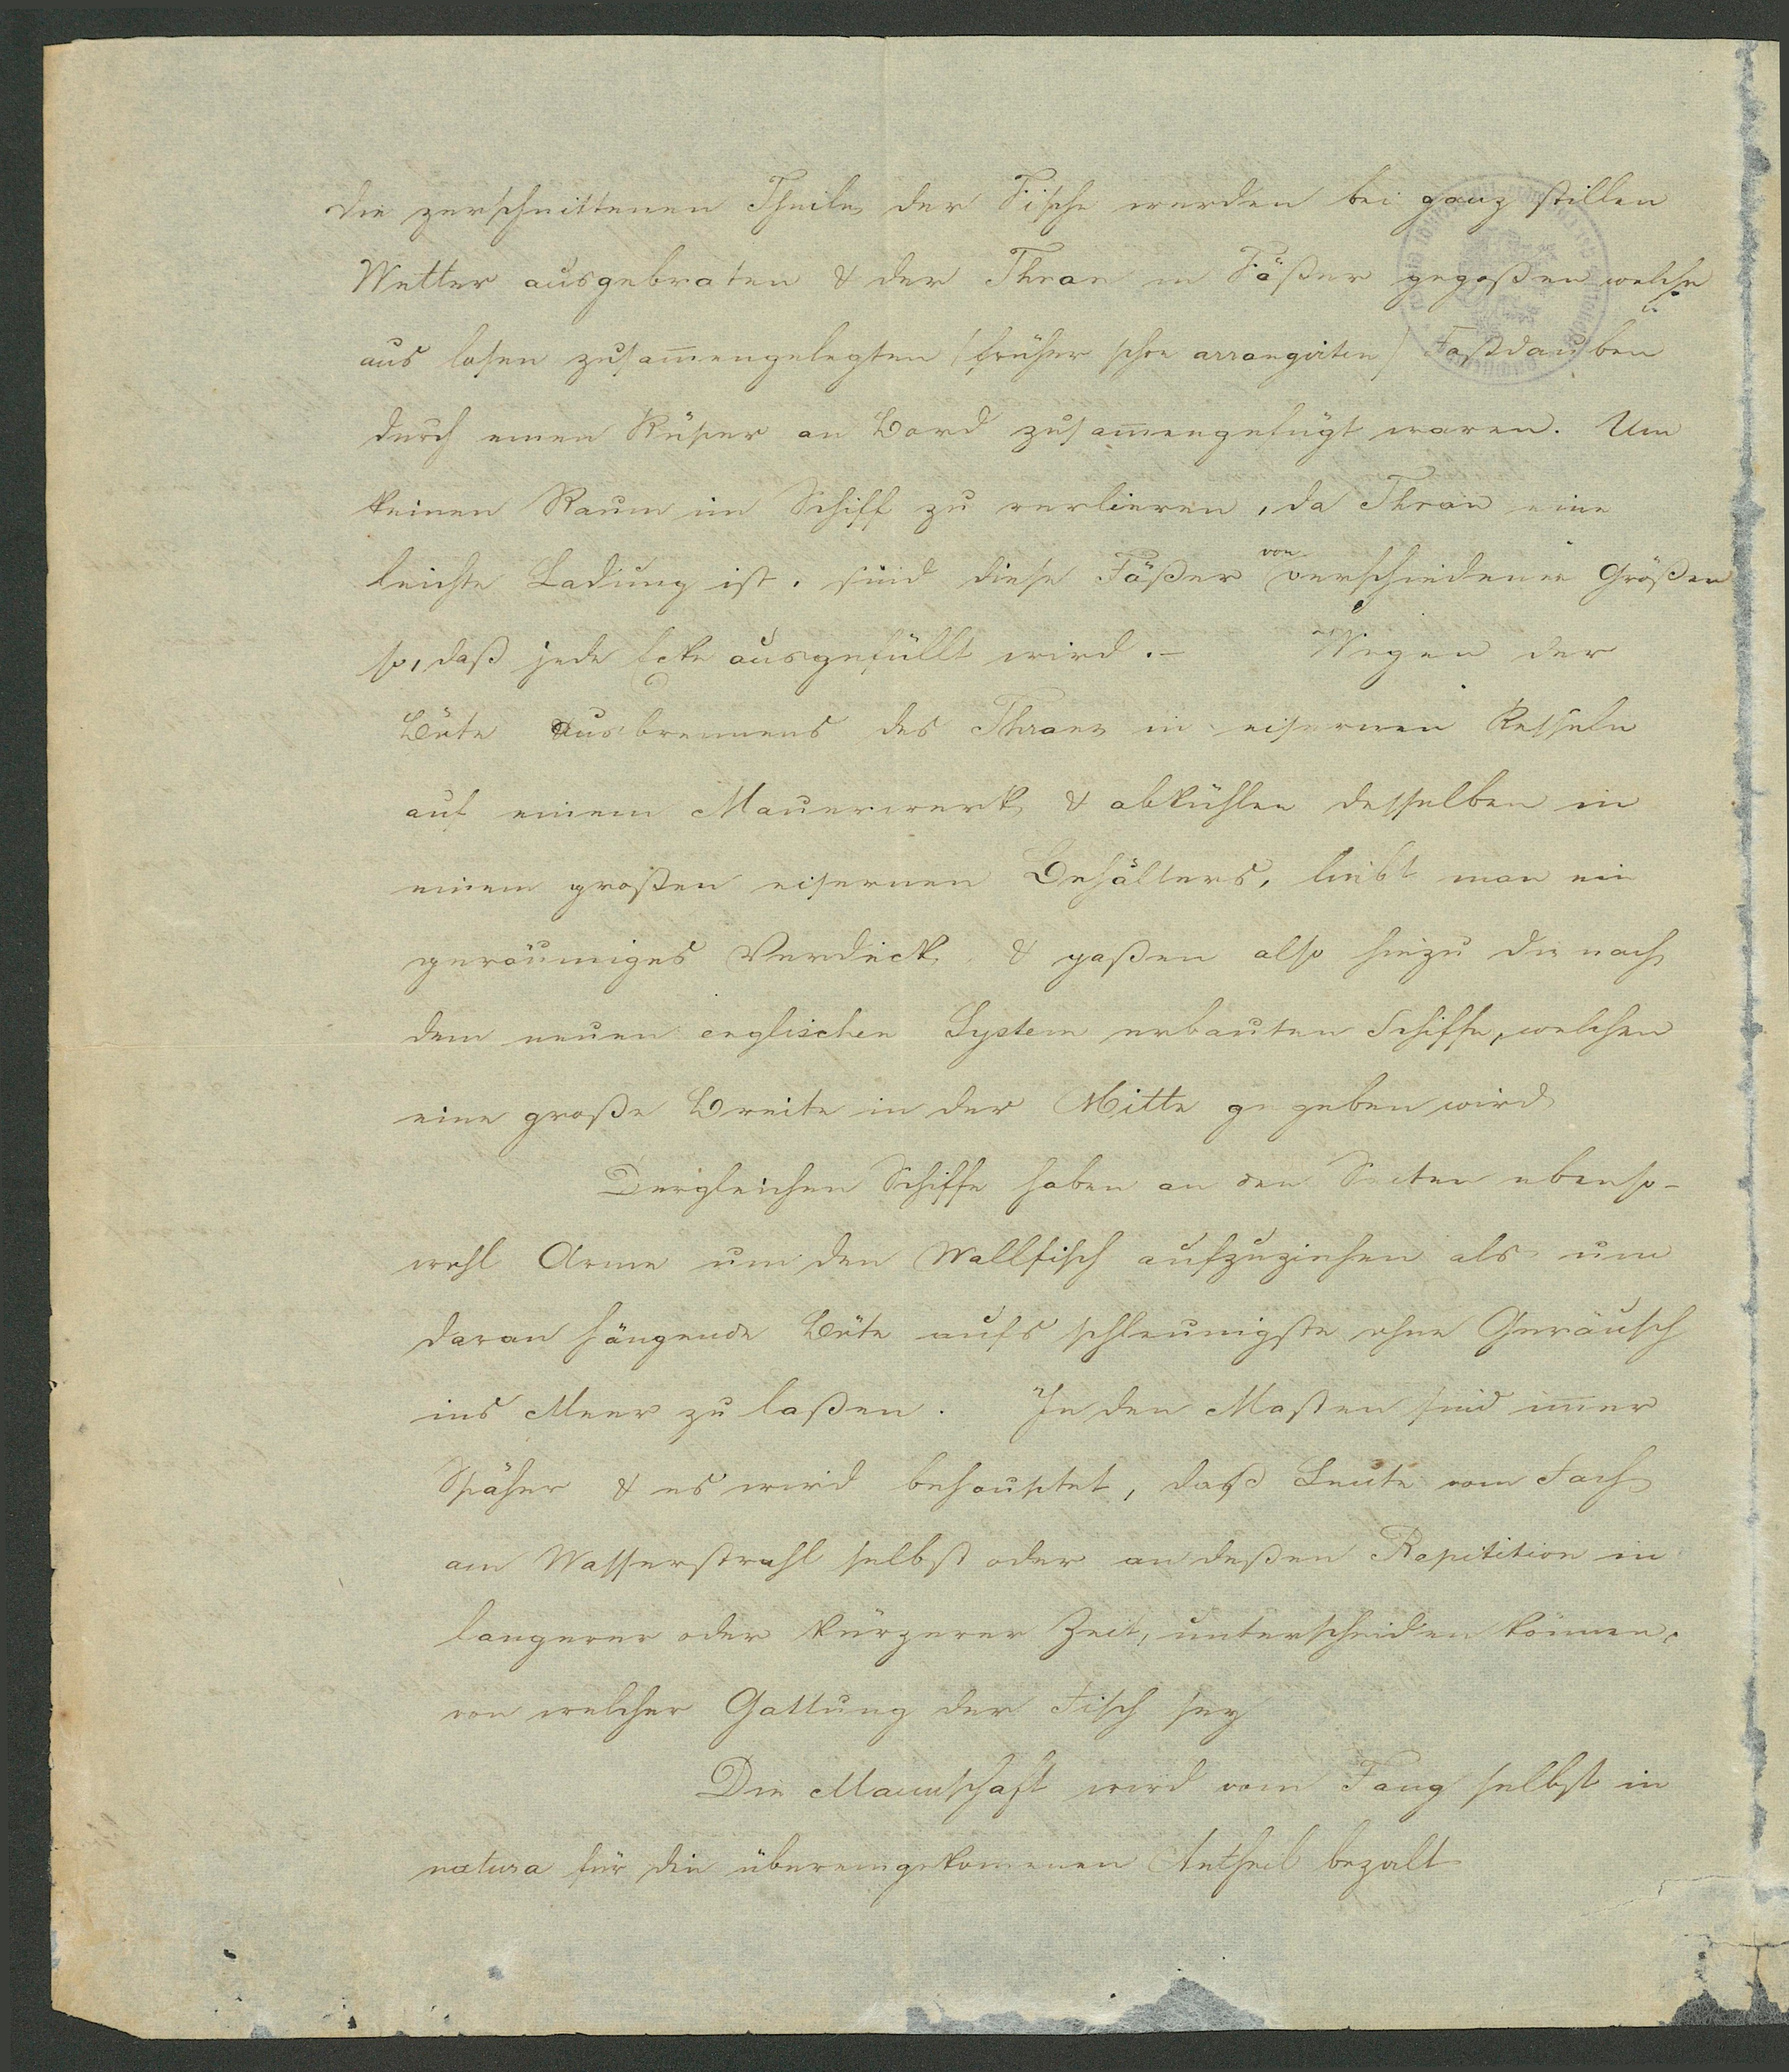 Die zerschnittenen Theile der Fische werden bei ganz stillen
Wetter ausgebraten & der Thran in Fäßer gegoßen welche
aus losen zusam̅engelegten (früher schon arrangirten) Faßdauben
durch einen Küper an Bord zusam̅engefügt waren. Um
keinen Raum im Schiff zu verlieren, da Thran eine
leichte Ladung ist, sind diese Fäßer von verschiedenen Größen
so, daß jede Ecke ausgefüllt wird.– Wegen der
Böte Ausbrennens des Thrans in eisernen Kesseln
auf einem Mauerwerk & abkühlen desselben in
einem großen eisernen Behälters, liebt man ein
geräumiges Verdeck & paßen also hiezu die nach
dem neuen englischen System erbauten Schiffe, welchen
eine große Breite in der Mitte gegeben wird
Dergleichen Schiffe haben an den Seiten ebenso-
wohl Arme um den Wallfisch aufzuziehen als um
daran hängende Böte aufs schleunigste ohne Geräusch
ins Meer zu laßen. In den Masten sind im̅er
Späher & es wird behauptet, daß Leute vom Fach
am Wasserstrahl selbst oder an deßen Repitition in
langerer oder kürzerer Zeit, unterscheiden können,
von welcher Gattung der Fisch sey
Die Mannschaft wird vom Fang selbst in
natura für die übereingekom̅enen Antheil bezalt